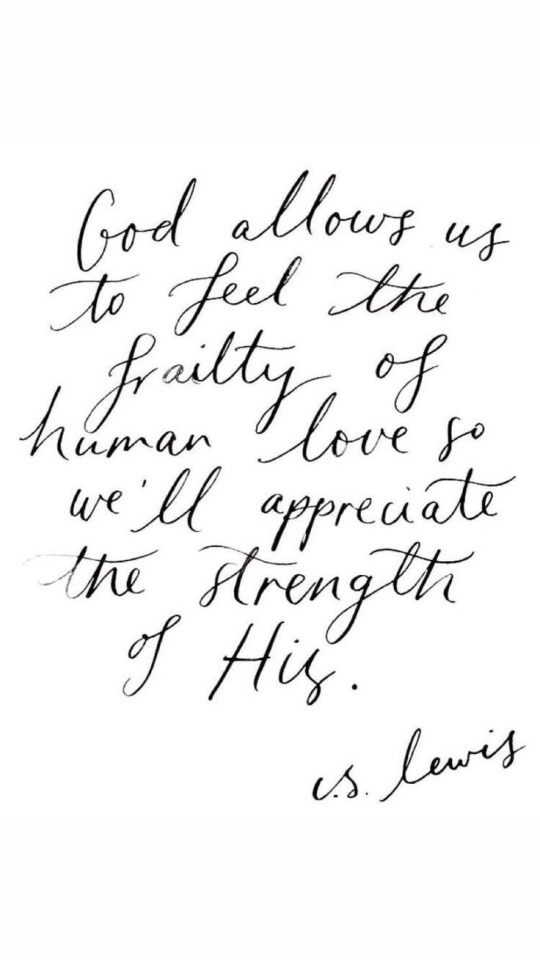 God allows us
to feel the
frailty of
human love so
we'll appreciate
the strength
of His.
c.s. lewis